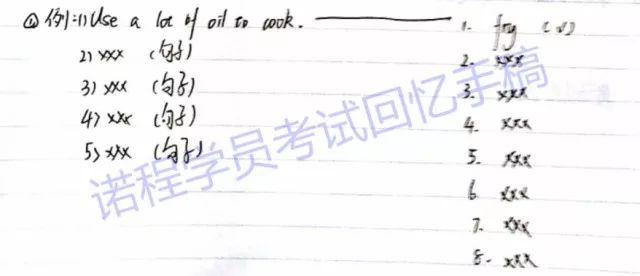 ① 例:1) Use a lot of oil to cook.
2) xxx (句子)
3) xxx (句子)
4) xxx (句子)
5) xxx (句子)
1. fry (√)
2. xxx
3. xxx
4. xxx
5. xxx
6. xxx
7. xxx
8. xxx
诺程学员考试回忆手稿